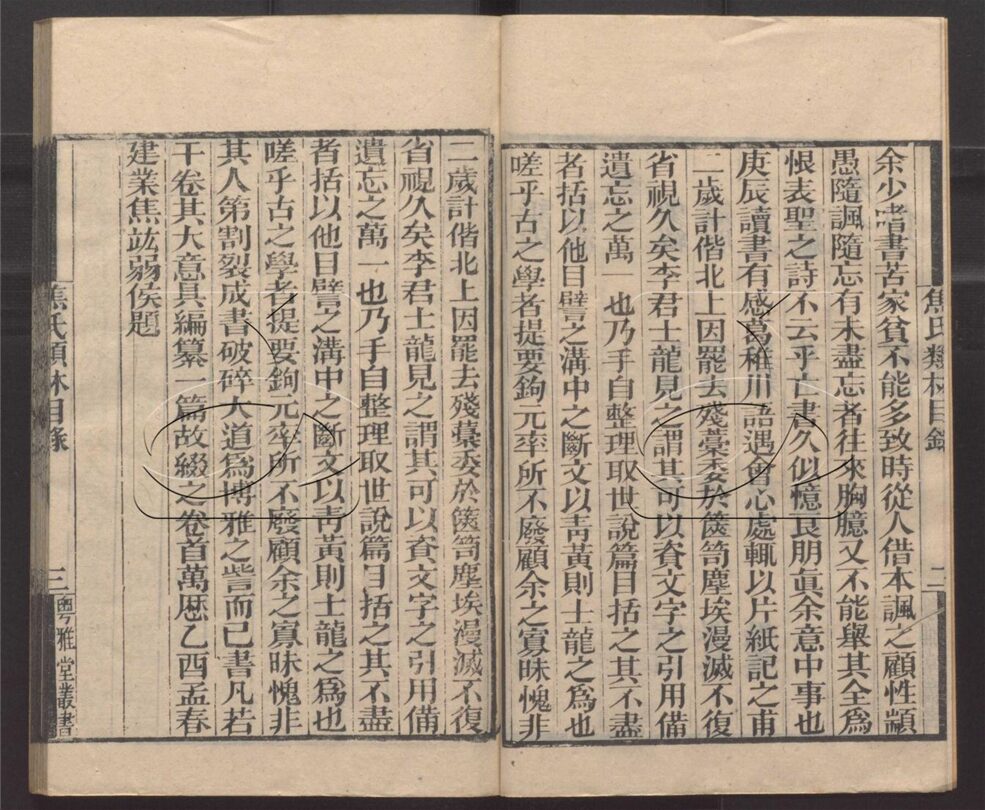 余少嗜書苦家貧不能多致時從人借本諷之顧性顓
愚隨諷隨忘有未盡忘者往來胸臆又不能舉其全爲
恨表聖之詩不云乎亡書久似憶良朋眞余意中事也
庚辰讀書有感葛稚川語遇會心處輒以片紙記之甫
二歲計偕北上因罷去殘藁委於篋笥塵埃漫滅不復
省視久矣李君士龍見之謂其可以資文字之引用備
遺忘之萬一也乃手自整理取世說篇目括之其不盡
者括以他目譬之溝中之斷文以靑黃則士龍之爲也
嗟乎古之學者提要鉤元率所不廢顧余之寡昧愧非
焦氏類林目錄
二
二歲計偕北上因罷去殘藁委於篋笥塵埃漫滅不復
省視久矣李君士龍見之謂其可以資文字之引用備
遺忘之萬一也乃手自整理取世說篇目括之其不盡
者括以他目譬之溝中之斷文以靑黃則士龍之爲也
嗟乎古之學者提要鉤元率所不廢顧余之寡昧愧非
其人第割裂成書破碎大道爲博雅之訾而已書凡若
干卷其大意具編纂一篇故綴之卷首萬厯乙酉孟春
建業焦竑弱侯題
焦氏類林目錄
三
粵雅堂叢書